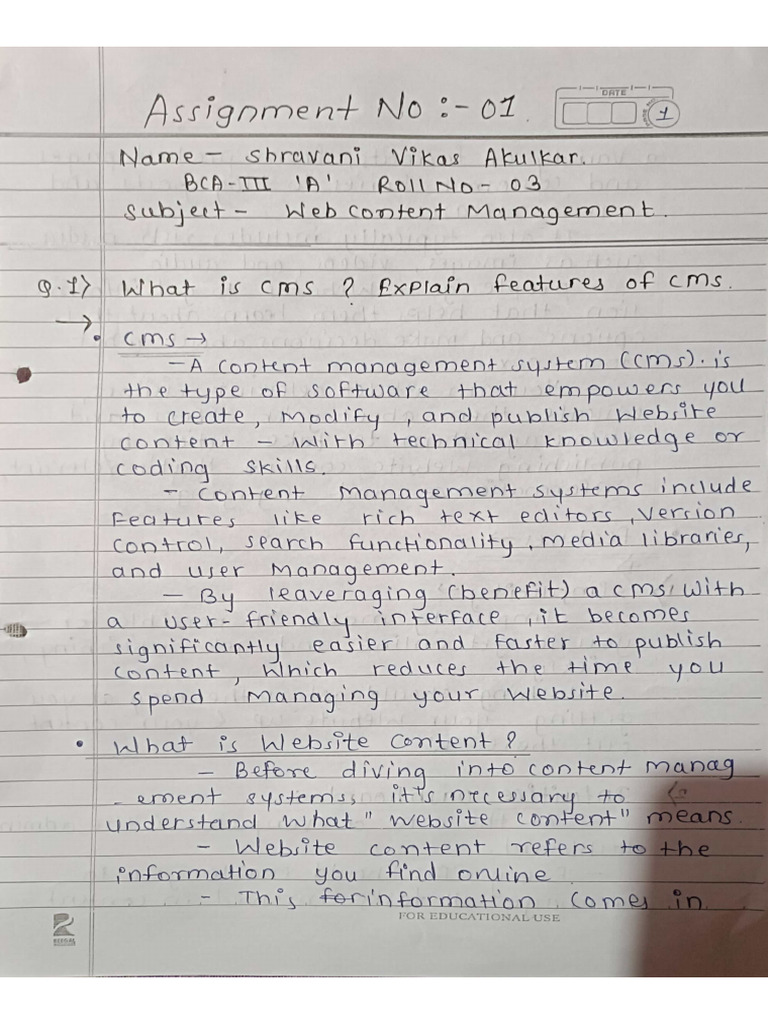 DATE
Assignment No :- 01.
1
Name - Shravani Vikas Akulkar.
BCA-III 'A' Roll No - 03
Subject - Web Content Management.
Q.1) What is CMS ? Explain features of CMS.
→
• CMS →
- A content management system (CMS). is
the type of software that empowers you
to create, modify, and publish website
content - with technical knowledge or
coding skills.
- Content management systems include
features like rich text editors, version
control, search functionality, media libraries,
and user management.
- By leaveraging (benefit) a CMS with
a user-friendly interface, it becomes
significantly easier and faster to publish
content, which reduces the time you
spend managing your website.
• What is Website Content ?
- Before diving into content manag
- ement systems, it's necessary to
understand what " website content" means.
- Website content refers to the
information you find online
- This for information comes in
FOR EDUCATIONAL USE